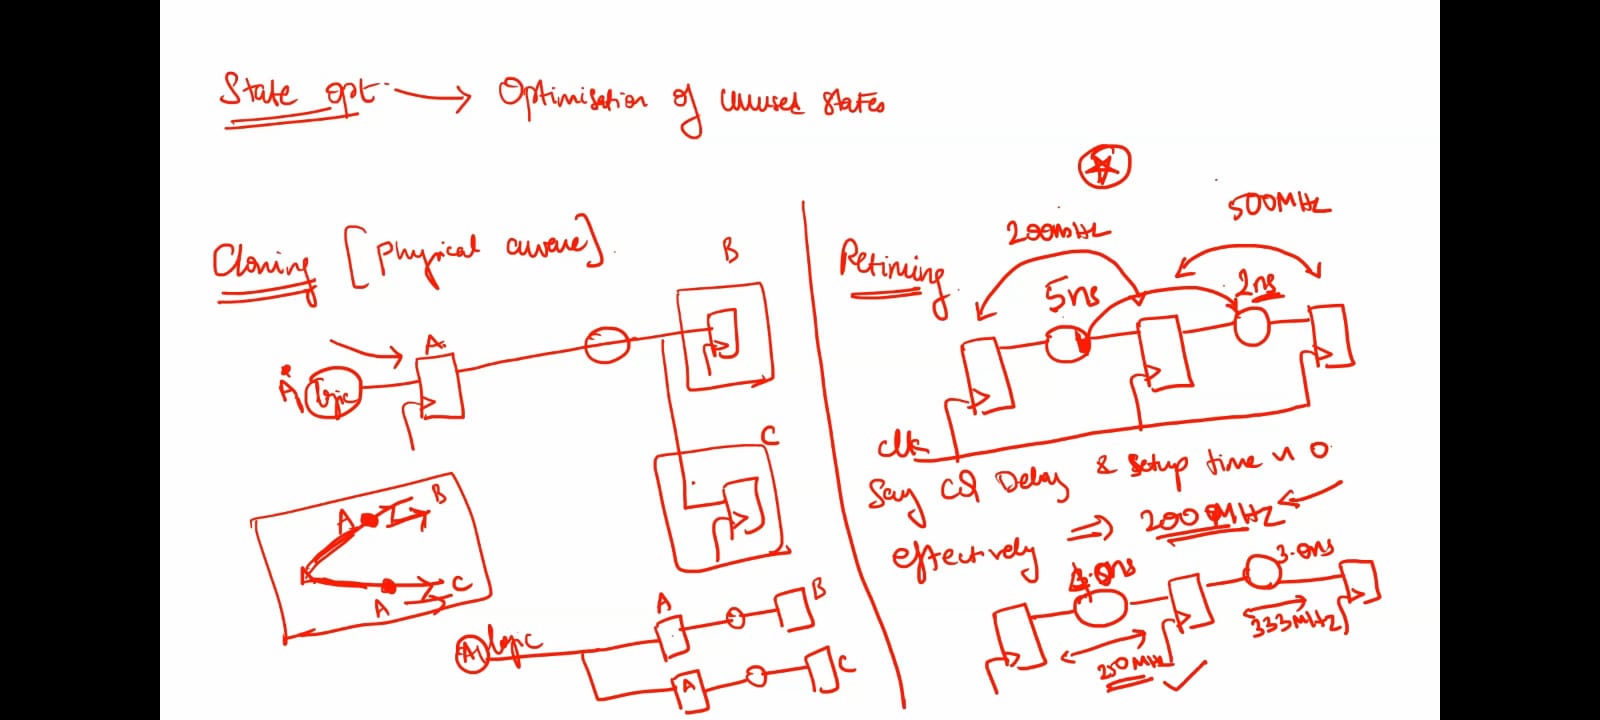 State opt. → Optimisation of unused states
Cloning [Physical aware]
B
A
A
logic
C
A B
A C
A1 logic
A
B
A
C
Retiming
200MHz
500MHz
5ns
2ns
clk
Say CQ Delay & setup time ~ 0
effectively ⇒ 200MHz
4.0ns
3.0ns
250MHz
333MHz